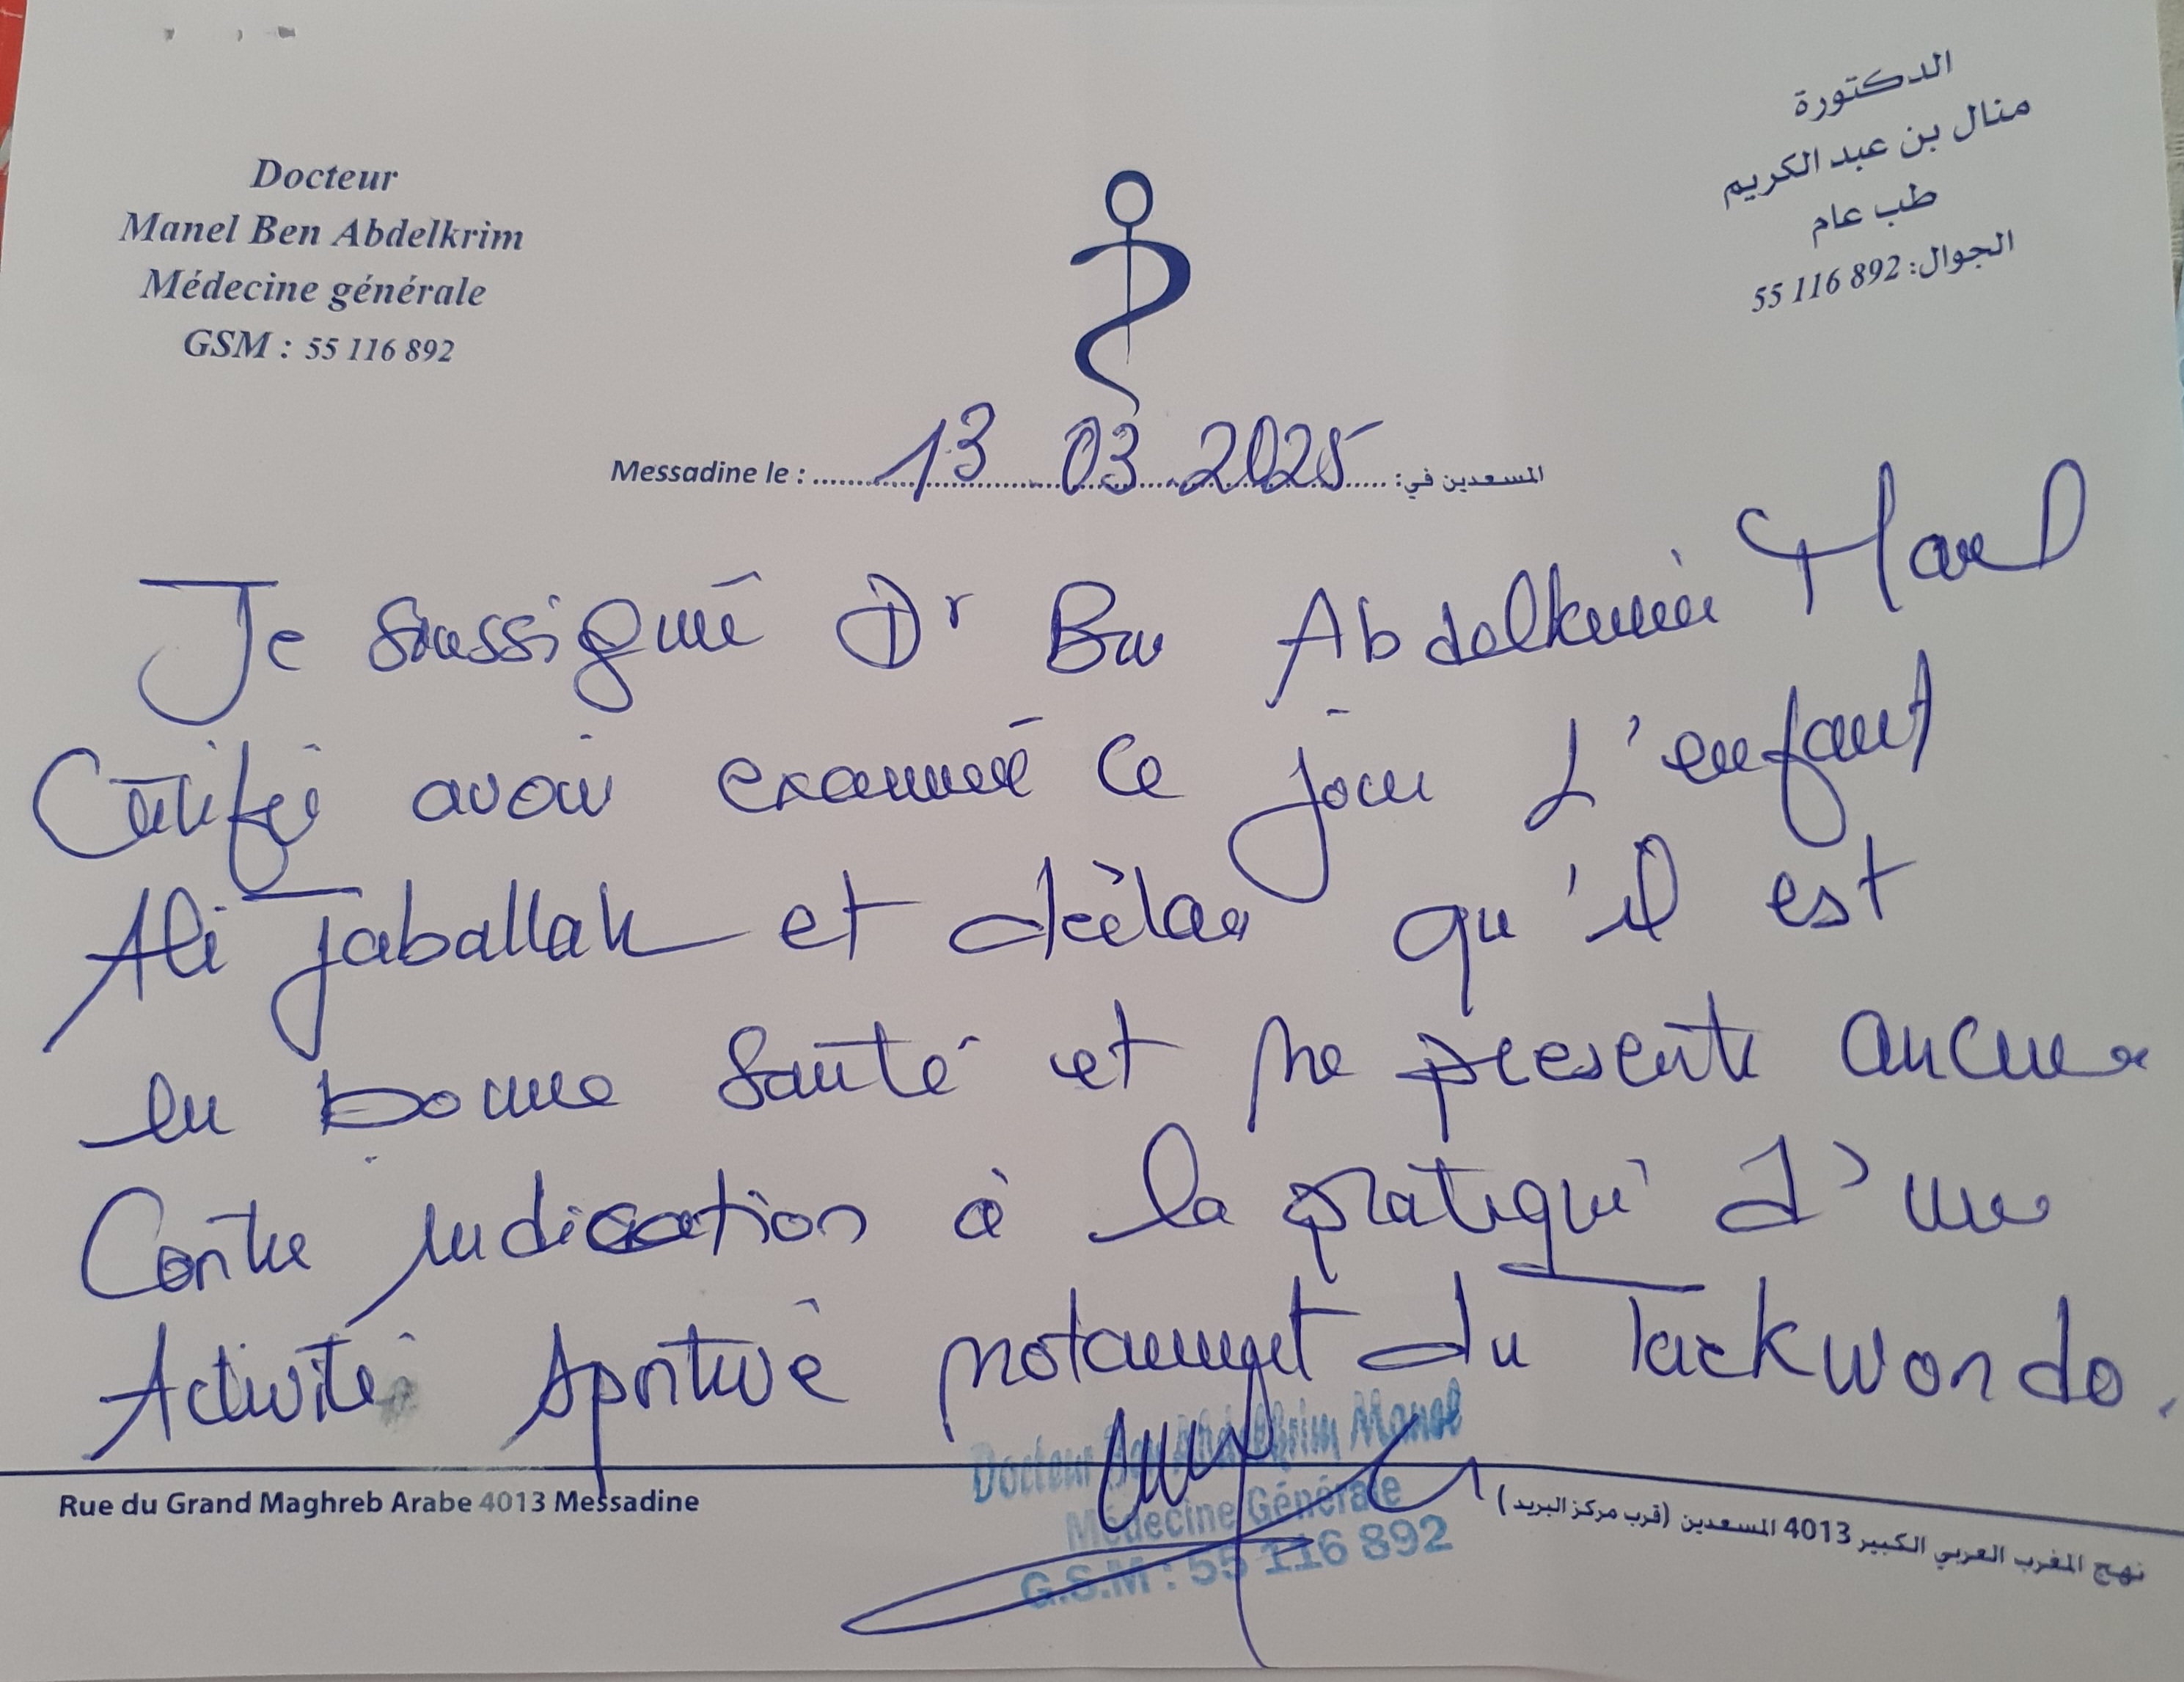 Docteur
Manel Ben Abdelkrim
Médecine générale
GSM : 55 116 892
الدكتورة
منال بن عبد الكريم
طب عام
الجوال: 892 116 55
Messadine le : 13 03 2025 المسعدين في:
Je soussigné Dr Ben Abdelkrim Manel
Certifie avoir examiné ce jour l'enfant
Ali Jaballah et déclare qu'il est
en bonne santé et ne présente aucune
Contre indication à la pratique d'une
Activité sportive notamment du Taekwondo.
Docteur Ben Abdelkrim Manel
Médecine Générale
G.S.M : 55 116 892
Rue du Grand Maghreb Arabe 4013 Messadine
نهج المغرب العربي الكبير 4013 المسعدين (قرب مركز البريد)